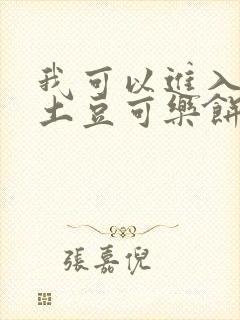 我可以進入
土豆可樂餅
張嘉倪